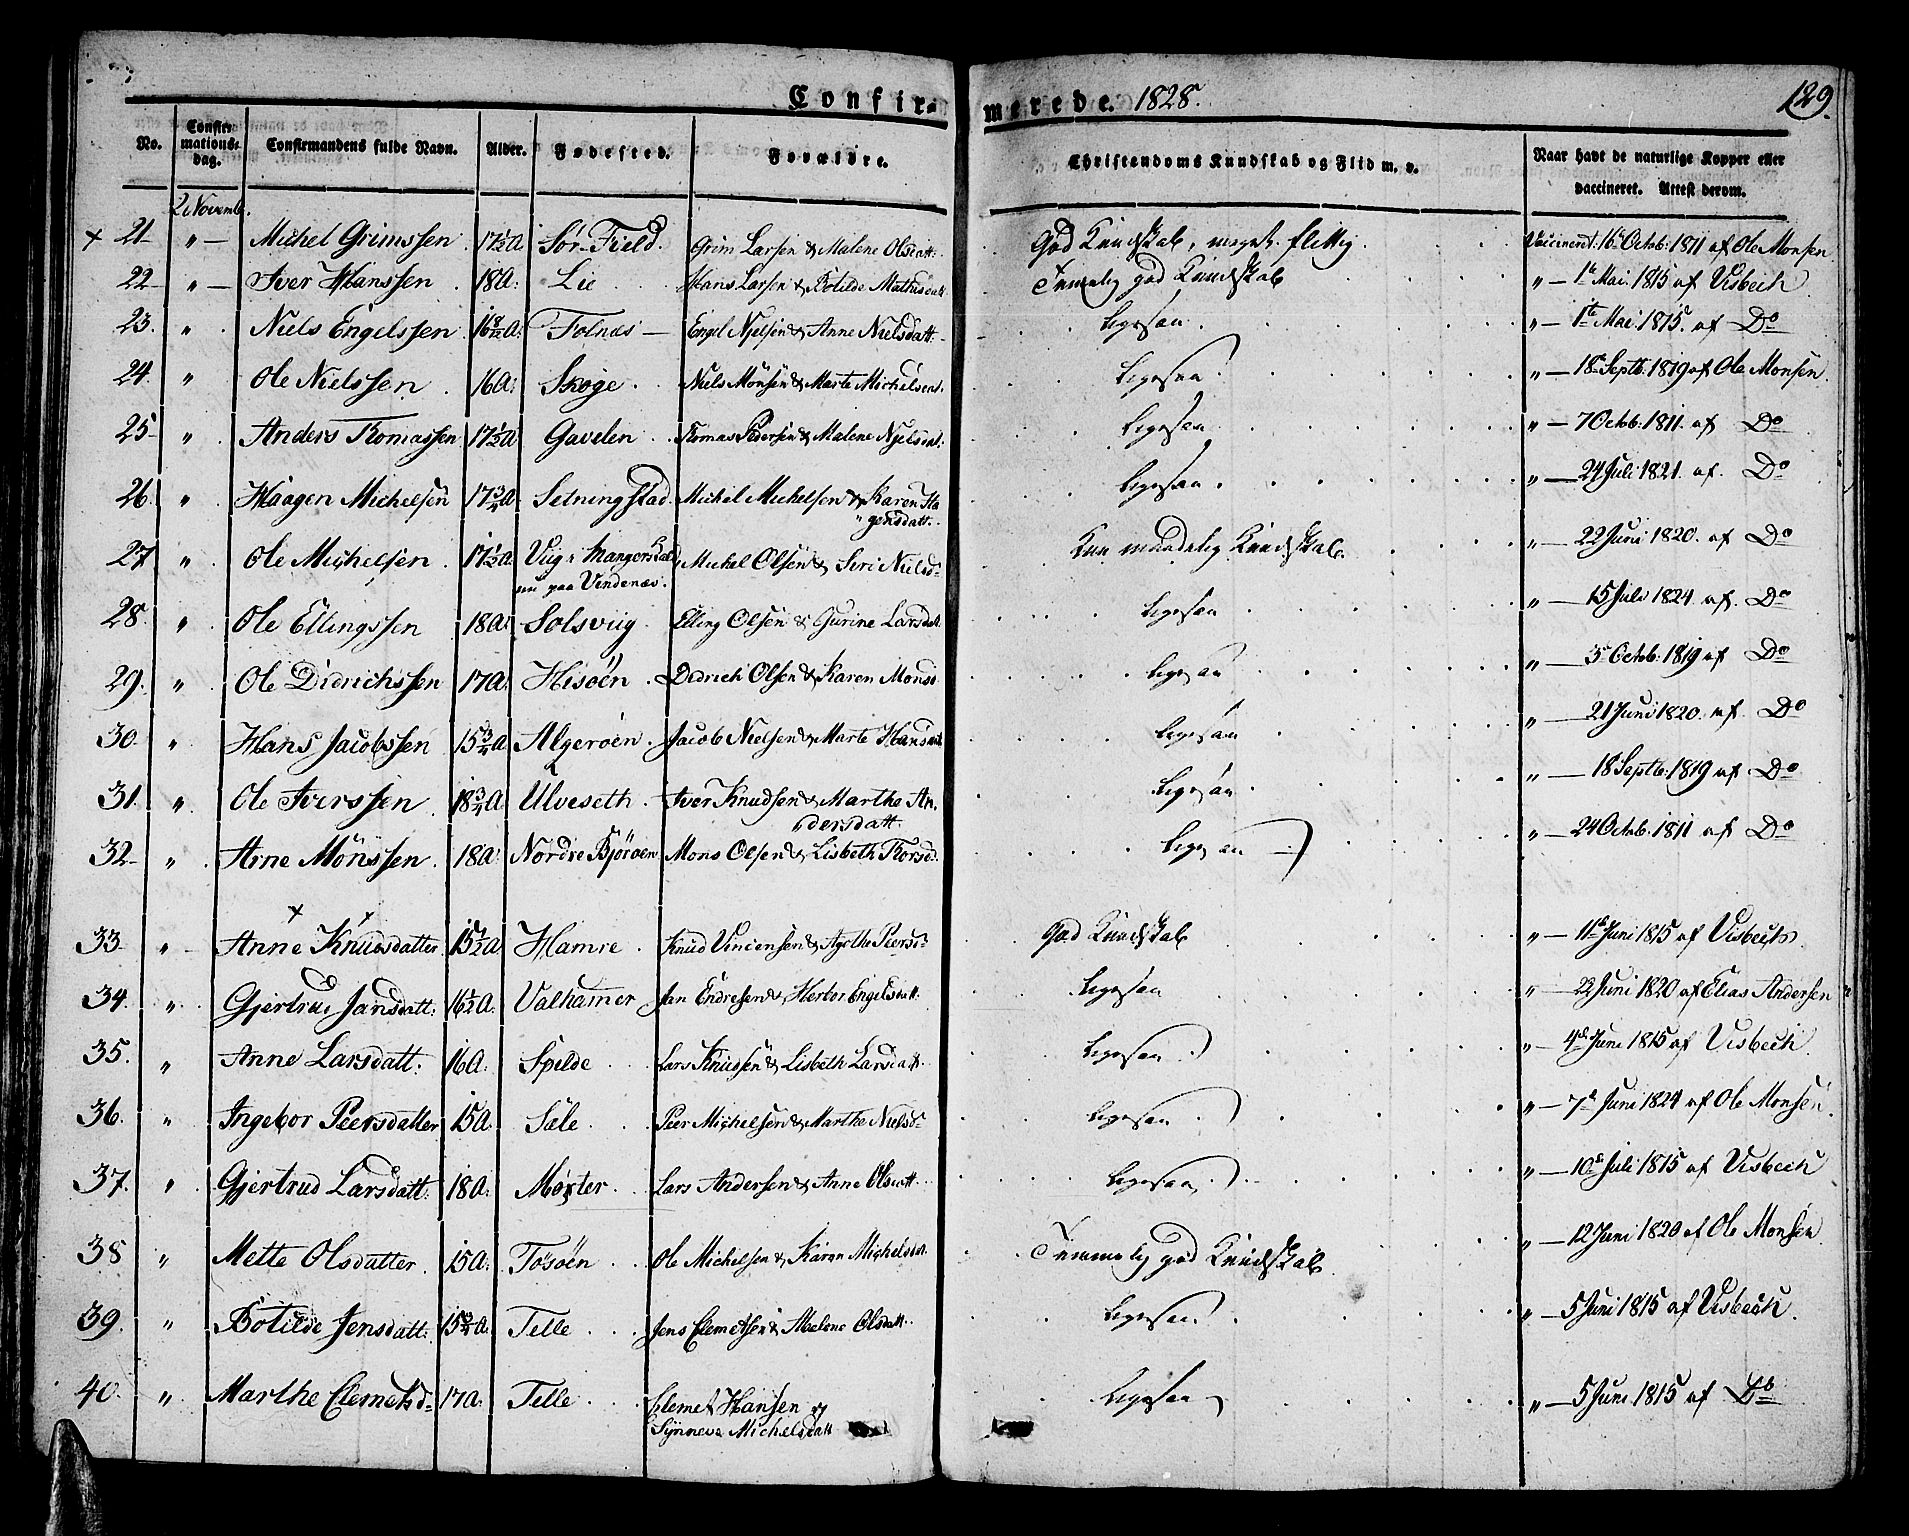 Confir- merede. 1828. 129.
No. Confirmationsdag. Confirmandens fulde Navn. Alder. Fødested. Forældre. Christendoms Kundskab og Flid m. v. Naar havt de naturlige Kopper eller vaccineret. Attest derom.
2 Novemb.
+ 21 " Michel Grimssen 17½A Sør-Field. Grim Larsen & Malene Olsdatt. God Kundskab, meget flittig Vaccineret 16 Octob: 1811 af Ole Monsen
22 " Iver Hanssen 18A: Lie Hans Larsen & Botilde Mathisdatt Temmelig god Kundskab " 1te Mai 1815 af Visbech
23. " Niels Engelssen 16 8/12A: Tolnæs Engel Nielsen & Anne Nielsdatt. Ligesaa " 1te Mai 1815. af Do
24. " Ole Nielssen 16A: Skoge Niels Monsen & Marte Michelsdt. Ligesaa " 18 Septb. 1819 af Ole Monsen.
25 " Anders Tomassen 17½A Gavelen Tomas Pedersen & Malene Njelsdt. Ligesaa " 7 Octb. 1811. af Do
26. " Haagen Michelsen 17¾A Setningstad Michel Michelsen & Karen Ha Ligesaa " 24 Juli 1821. af. Do
" gensdatt.
27 " Ole Michelsen 17½A Viig i Mangers Michel Olsen & Siri Nielsd Kun maadelig Kundskab. " 22 Juni 1820. af Do
nu paa Vindenæs.
28. " Ole Ellingssen 18A: Solsviig. Elling Olsen & Gurine Larsdatt Ligesaa " 15 Juli 1824 af. Do
29. " Ole Didrichssen 17A: Hisøen Didrich Olsen & Karen Monsd Ligesaa " 3 Octob: 1819 af Do
30. " Hans Jacobssen 15¾A Algerøen Jacob Nielsen & Marte Hansdt Ligesaa " 21 Juni 1820. af. Do
31. " Ole Iverssen 18¾A Ulveseth Iver Knudsen & Marthe An, Ligesaa " 18 Septb. 1819 af Do
" dersdatt.
32 " Arne Monssen. 18A: Nordre Bjorøen Mons Olsen & Lisbeth Torsd. Ligesaa " 24 Octob. 1811 af Do
33 " Anne Knudsdatter 15½A Hamre Knud Vincensen & Agathe Peersd God Kundskab " 11te Juni 1815 af Visbech.
34. " Gjertrud Jansdatt. 16½A. Valhamer Jan Endresen & Herbor Engelsdatt Ligesaa " 22 Juni 1820 af Elias Andersen
35. " Anne Larsdatt. 16A. Spilde Lars Knudsen & Lisbeth Larsdatt Ligesaa " 4de Juni 1815 af Visbech.
36. " Ingebor Peersdatter 15A Sele Peer Michelsen & Marthe Nielsd Ligesaa " 7de Juni 1824 af Ole Monsen.
37. " Gjertrud Larsdatt. 18A: Møxter Lars Andersen & Anne Olsdatt Ligesaa " 10de Juli 1815 af Visbech
38 " Mette Olsdatter. 15A: Tøsøen Ole Michelsen & Karen Michelsdt. Temmelig god Kundskab " 12 Juni 1820 af Ole Monsen
39. " Botilde Jensdatt. 15¾A. Telle Jens Clemetsen & Malene Olsdatt. Ligesaa. " 5 Juni 1815 af Visbech.
40. " Marthe Clemetsd 17A: Telle Clemet Hansen og Ligesaa " 5 Juni 1815 af Do
Synneva Michelsdatt